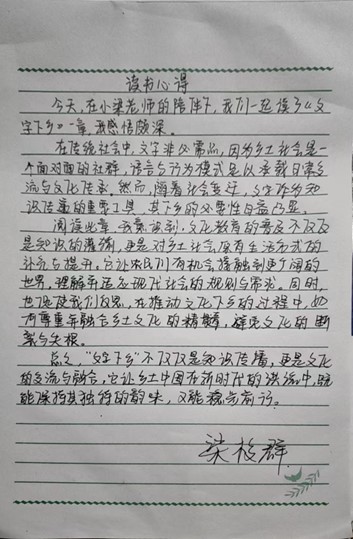 读书心得
今天，在小梁老师的陪伴下，我们一起读了《文
字下乡》一章，我感悟颇深。
在传统社会中，文字非必需品，因为乡土社会是一
个面对面的社群，语言与行为模式足以承载日常交
流与文化传承。然而，随着社会变迁，文字作为知
识传播的重要工具，其下乡的必要性日益凸显。
阅读此章，我意识到，文化教育的普及不仅仅
是知识的灌输，更是对乡土社会原有生活方式的
补充与提升。它让农民们有机会接触到更广阔的
世界，理解并适应现代社会的规则与需求。同时，
也促使我们反思，在推动文化下乡的过程中，如
何尊重并融合乡土文化的精髓，避免文化的断
裂与失根。
总之，“文字下乡”不仅仅是知识传播，更是文化
的交流与融合，它让乡土中国在新时代的浪潮中，既
能保持其独特的韵味，又能稳步前行。
梁松群